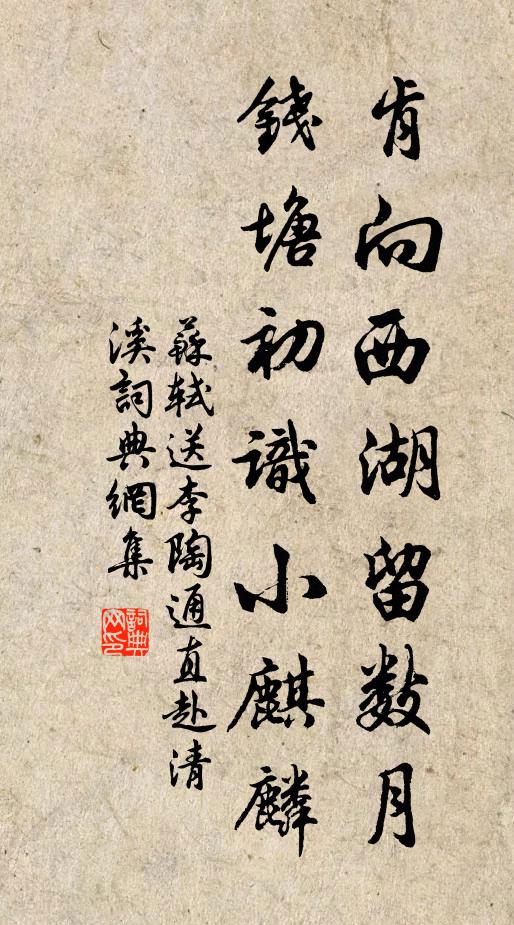 肯向西湖留數月
錢塘初識小麒麟
蘇軾送李陶通直赴清
溪詞典網集
詞典
网印